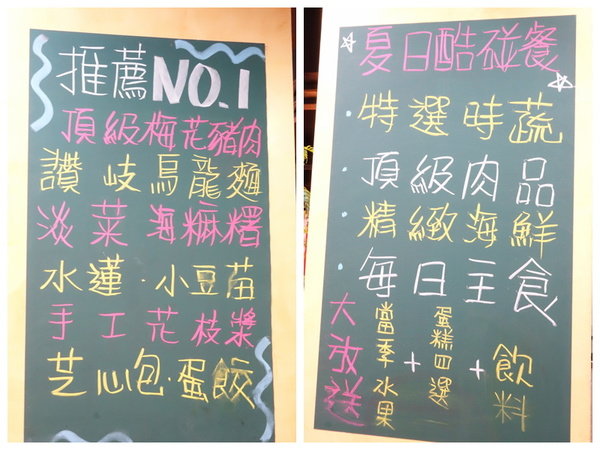 推薦NO.1
頂級梅花豬肉
讚岐烏龍麵
淡菜海㾴糬
水蓮·小豆苗
手工花枝漿
芝心包·蛋餃
夏日酷碰餐
·特選時蔬
·頂級肉品
·精緻海鮮
·每日主食
大放送
當季水果
+
蛋糕四選
+
飲料